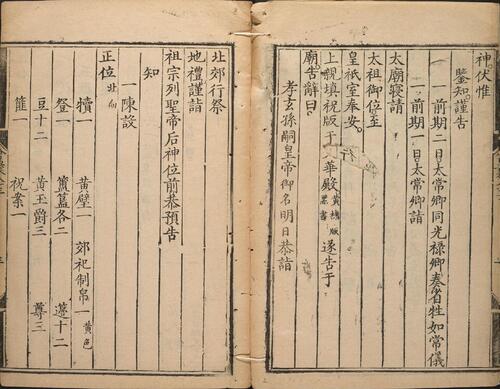 神伏惟
鑒知謹告
一前期二日太常卿同光禄卿奏省牲如常儀
一前期一日太常卿請
太廟寢請
太祖御位至
皇祇室奉安
上親填祝版于文華殿黄楮版墨書遂告于
廟告辭曰
孝玄孫嗣皇帝御名明日恭詣
北郊行祭
地禮謹詣
祖宗列聖帝后神位前恭預告
知
一陳設
正位北向
犢一 黄璧一 郊祀制帛一黄色
登一 簠簋各二 籩十二
豆十二 黄玉爵三 尊三
篚一 祝案一